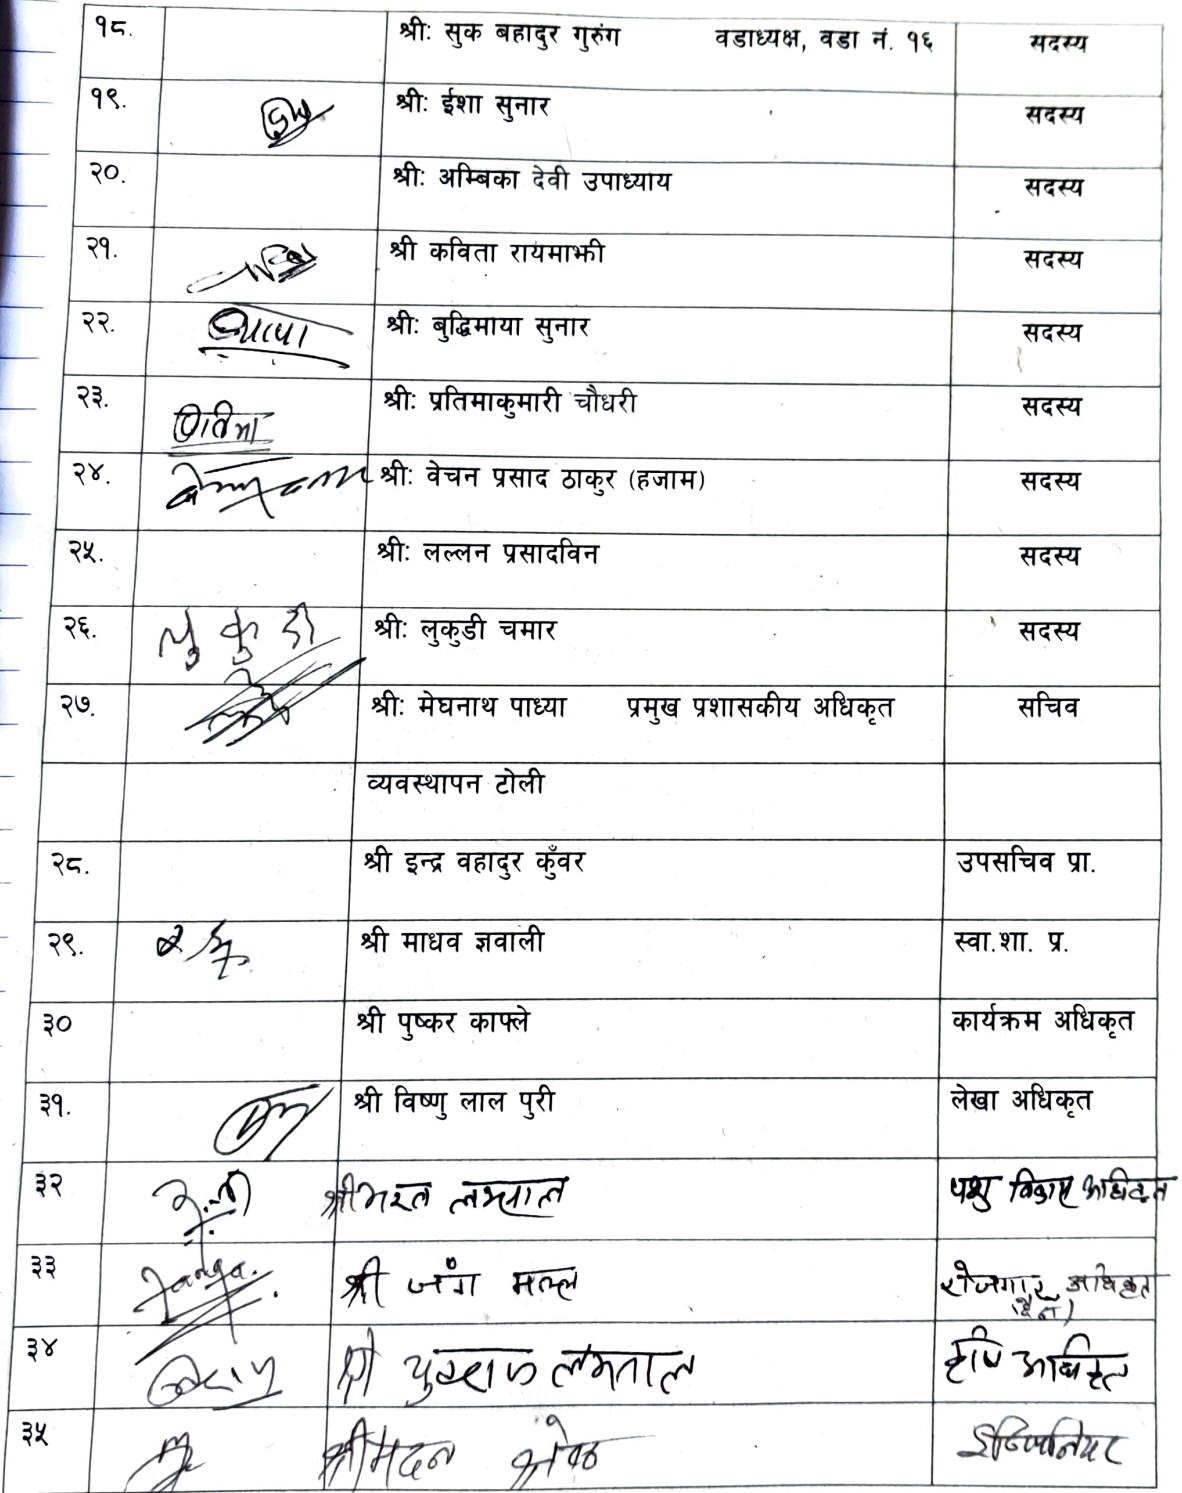 १८. श्री: सुक बहादुर गुरुंग वडाध्यक्ष, वडा नं. १६ सदस्य
१९. श्री: ईशा सुनार सदस्य
२०. श्री: अम्बिका देवी उपाध्याय सदस्य
२१. श्री कविता रायमाझी सदस्य
२२. श्री: बुद्धिमाया सुनार सदस्य
२३. प्रतिमा श्री: प्रतिमाकुमारी चौधरी सदस्य
२४. श्री: वेचन प्रसाद ठाकुर (हजाम) सदस्य
२५. श्री: लल्लन प्रसादविन सदस्य
२६. लुकुडी श्री: लुकुडी चमार सदस्य
२७. श्री: मेघनाथ पाध्या प्रमुख प्रशासकीय अधिकृत सचिव
व्यवस्थापन टोली
२८. श्री इन्द्र वहादुर कुँवर उपसचिव प्रा.
२९. श्री माधव ज्ञवाली स्वा.शा. प्र.
३० श्री पुष्कर काफ्ले कार्यक्रम अधिकृत
३१. श्री विष्णु लाल पुरी लेखा अधिकृत
३२ श्री भरत लम्साल पशु विकास अधिकृत
३३ Janga. श्री जंग मल्ल रोजगार अधिकृत
३४ श्री युवराज लम्साल कृषि अधिकृत
३५ श्री मदन इन्जिनियर